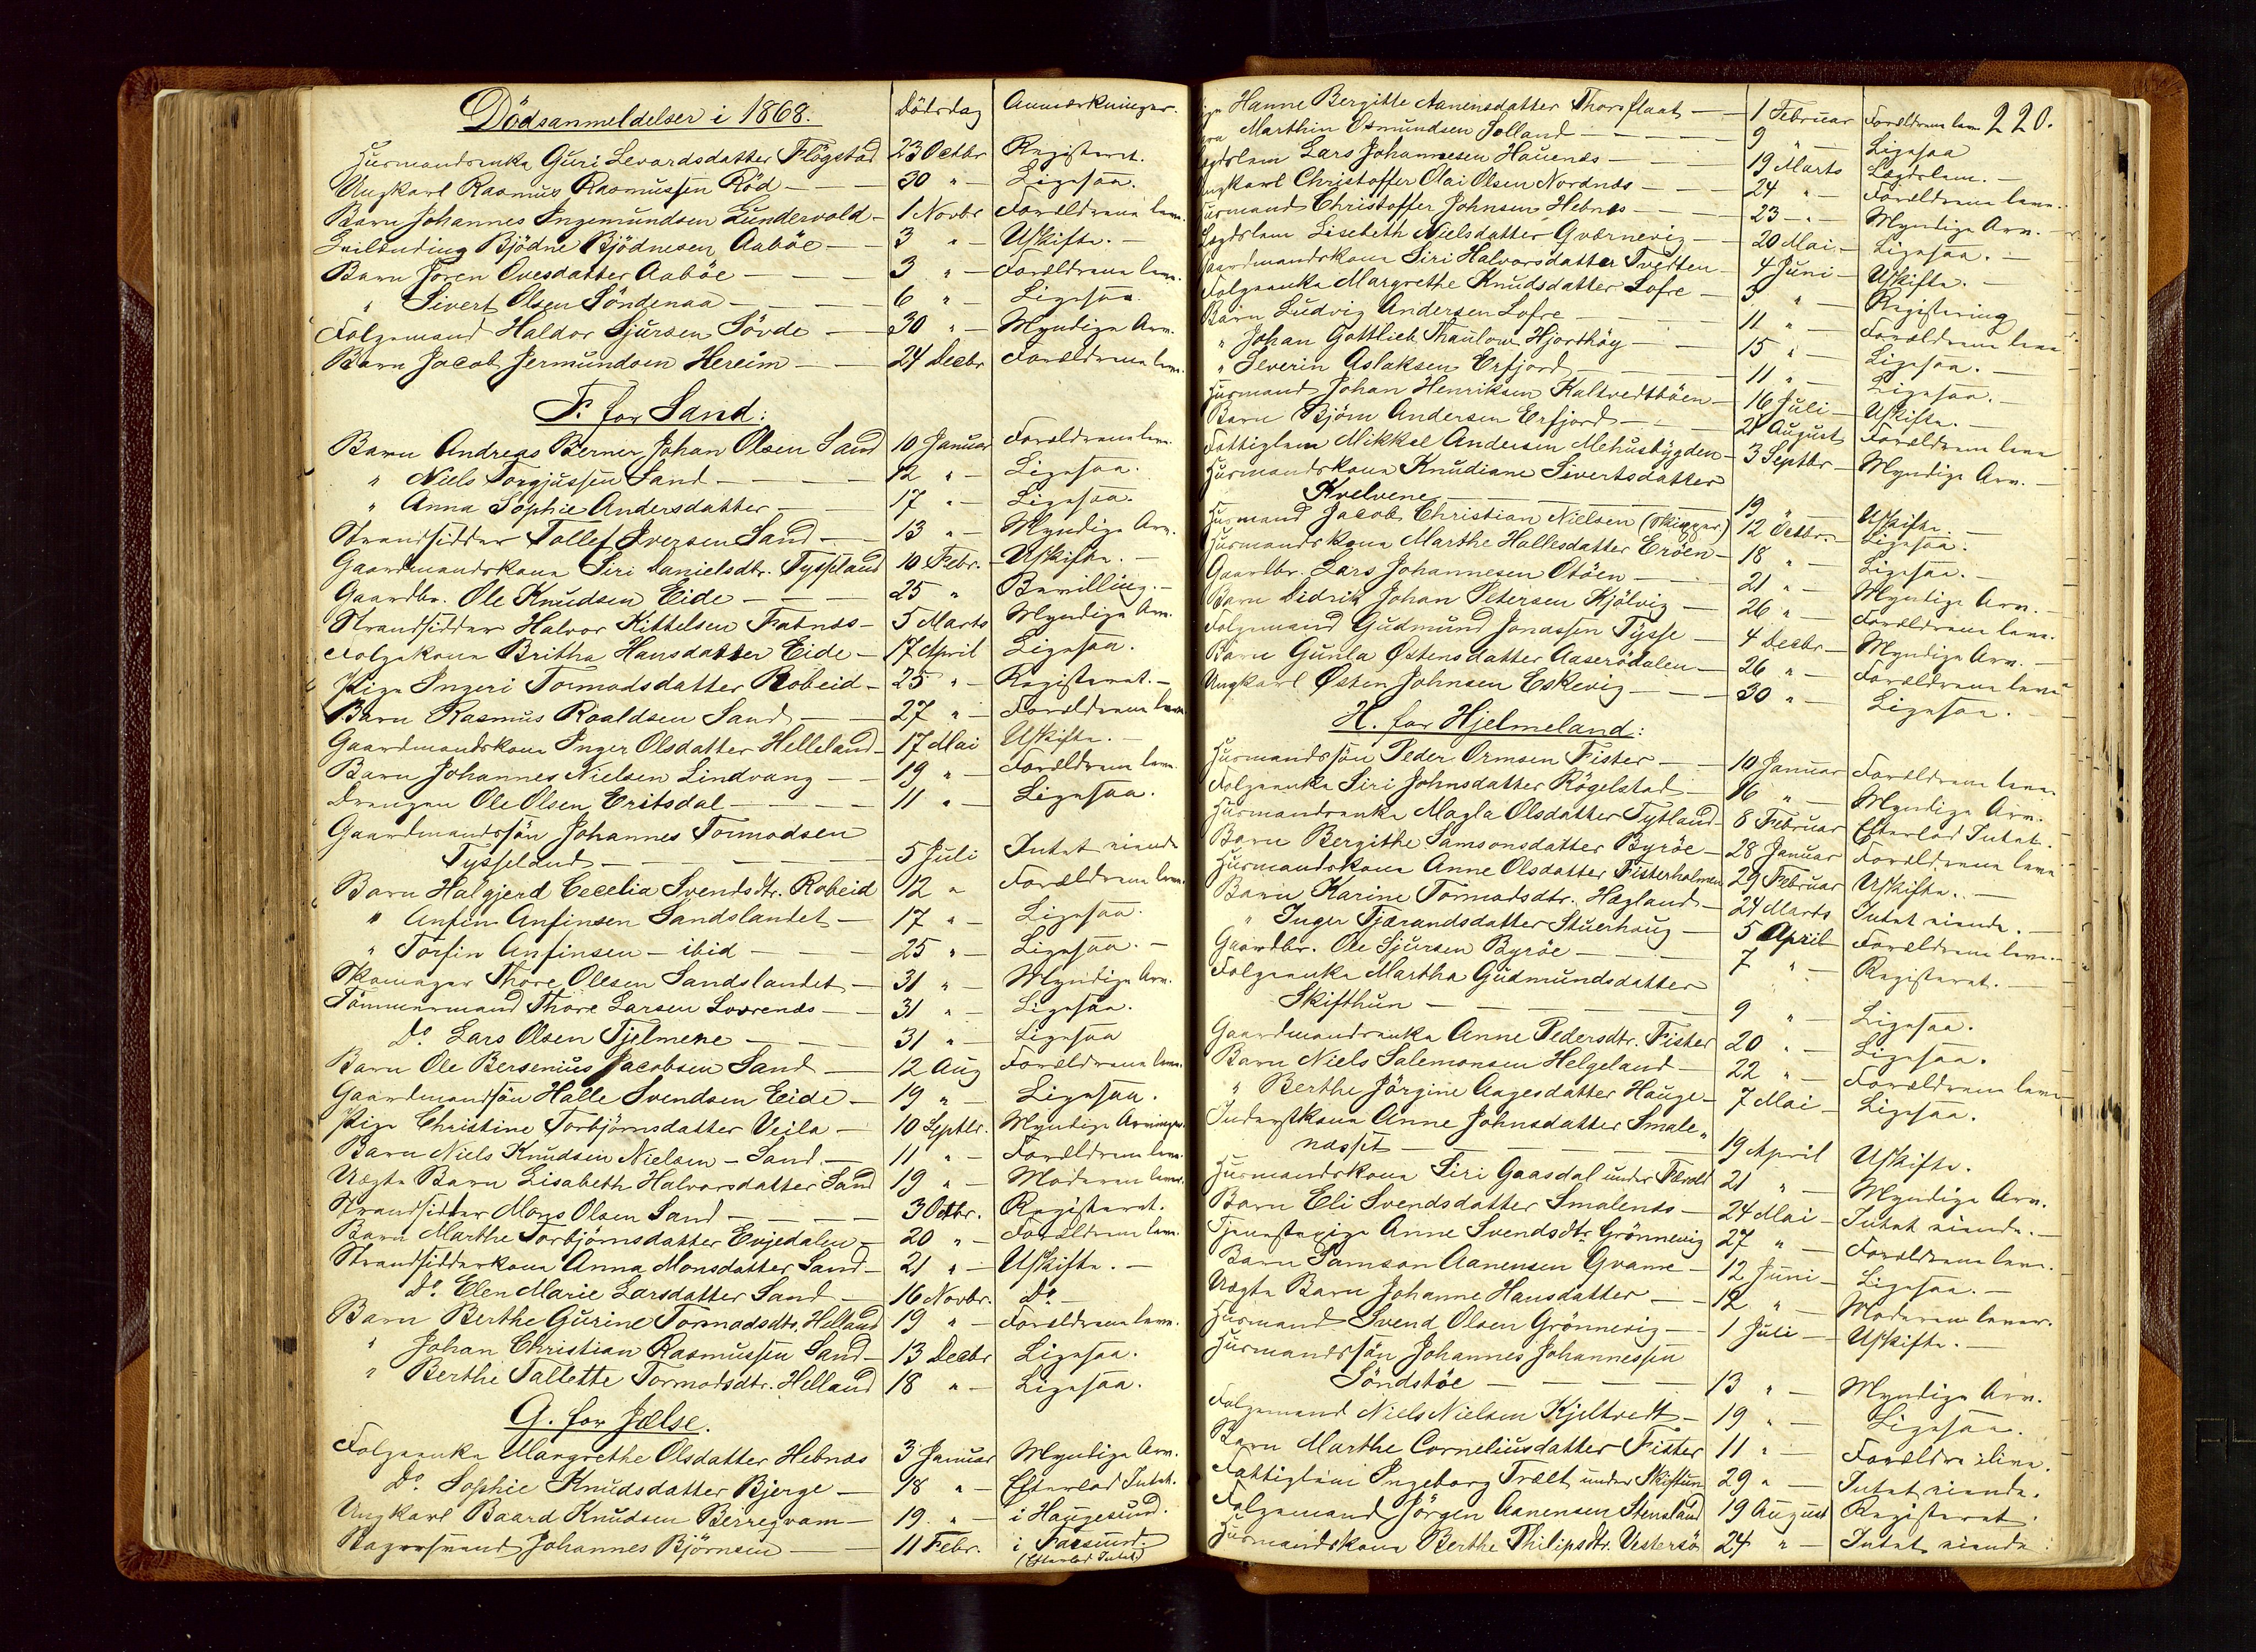 Dödsanmeldelser i 1868. Dödsdag Anmærkninger.
Husmandsenke Guri Levardsdatter Flögstad 23 Octbr Registeret.
Ungkarl Rasmus Rasmussen Röd — 30 " — Ligesaa.
Barn Johannes Ingemundsen Lundervold — 1 Novbr Forældrene leve.
Leilending Bjödne Bjödnesen Aaböe — 3 " — Uskifte. —
Barn Jören Ovesdatter Aaböe — 3 " — Forældrene leve.
" Sivert Olsen Söndenaa — 6 " Ligesaa.
Folgemand Haldor Sjursen Sövde — 30 " — Myndige Arv.
Barn Jacob Jermundsen Hereim — 24 Decbr Forældrene leve.
F. for Sand:
Barn Andreas Berner Johan Olsen Sand 10 Januar Forældrene leve.
" Niels Torgjussen Sand — 12 " — Ligesaa.
" Anna Sophie Andersdatter — 17 " — Ligesaa.
Strandsidder Tollef Iversen Sand — 13 " — Myndige Arv.
Gaardmandskone Siri Danielsdtr. Tysseland 10 Febr. — Uskifte. —
Gaardbr. Ole Knudsen Eide — 25 " Bevilling. —
Strandsidder Halvor Kittelsen Fatnæs — 5 Marts Myndige Arv.
Folgekone Britha Hansdatter Eide — 17 April Ligesaa.
Pige Ingeri Tormodsdatter Robeid — 25 " — Registeret. —
Barn Rasmus Roaldsen Sand — 27 " — Forældrene leve.
Gaardmandskone Inger Olsdatter Helleland — 17 Mai Uskifte. —
Barn Johannes Nielsen Lindvang — 19 " — Forældrene leve.
Drengen Ole Olsen Eritsdal — 11 " — Ligesaa.
Gaardmandssön Johannes Tormodsen
Tysseland — 5 Juli Intet eiende
Barn Halgjerd Cecelia Svendsdtr. Robeid 12 " Forældrene leve.
" Anfin Anfinsen Sandslandet — 17 " — Ligesaa.
" Torfin Anfinsen — ibid — 25 " — Ligesaa. —
Skomager Thore Olsen Sandslandet — 31 " — Myndige Arv.
Tömmermand Thore Larsen Lovrenæs — 31 " — Ligesaa.
Do. Lars Olsen Tjelmene — 31 " — Ligesaa
Barn Ole Bersenius Jacobsen Sand — 12 Aug Forældrene leve.
Gaardmandsön Halle Svendsen Eide — 19 " — Ligesaa.
Pige Christine Torbjörnsdatter Veila — 10 Septbr. Myndige Arvinger.
Barn Niels Knudsen Nielsen — Sand — 11 " — Forældrene leve.
Uægte Barn Lisabeth Halvorsdatter Sand 19 " — Moderen lever.
Strandsidder Mons Olsen Sand — 3 Octbr. Registeret.
Barn Marthe Torbjörnsdatter Evjedalen — 20 " — Forældrene leve.
Strandsidderkone Anna Monsdatter Sand — 21 " — Uskifte. —
Do. Elen Marie Larsdatter Sand — 16 Novbr. Do —
Barn Berthe Gurine Tormodsdtr. Helland 19 " — Forældrene leve.
" Johan Christian Rasmussen Sand — 13 Decbr Ligesaa.
" Berthe Tallette Tormodsdtr. Helland 18 " — Ligesaa.
G. for Jælse.
Folgeenke Margrethe Olsdatter Hebnæs 3 Januar Myndige Arv.
Do. Sophie Knudsdatter Bjerge — 18 " — Efterlod Intet.
Ungkarl Baard Knudsen Berregvam — 19. " — i Haugesund.
Johannes Björnsen — 11 Febr. i Farsund.
(Efterlod Intet)
220.
Hanne Bergitte Aanensdatter Thorsflaat — 1 Februar Forældrene leve
Marthin Osmundsen Solland — 9 " — Ligesaa
Lægdslem Lars Johannesen Hauenæs — 19 Marts Lægdslem. —
Ungkarl Christoffer Olai Olsen Nordnæs — 24 " Forældrene leve.
Husmand Christoffer Johnsen Hebnes — 23 — " Myndige Arv. —
Lægdslem Lisebeth Nielsdatter Gværnevig — 20 Mai — Ligesaa. —
Gaardmandskone Siri Halvorsdatter Tvedten — 4 Juni — Uskifte. —
Folgeenke Margrethe Knudsdatter Lofre — 5 " — Registering
Barn Ludvig Andersen Lofre — 11 " — Forældrene leve
" Johan Gottlieb Thaulow Hjorthöy — 15 " — Ligesaa. —
" Severin Aslaksen Erfjord — 11 " — Ligesaa. —
Husmand Johan Henriksen Kaltvedtböen — 16 Juli — Uskifte. —
Barn Björn Andersen Erfjord — 21 August Forældrene leve
Fattiglem Mikkel Andersen Mehusbygden — 3 Septbr — Myndige Arv. —
Husmandskone Knudiane Sivertsdatter
Kvelvene — 19 " Uskifte —
Husmand Jacob Christian Nielsen (Skipper) 12 Octbr. — Ligesaa.
Husmandskone Marthe Hallesdatter Eröen — 18 " — Ligesaa. —
Gaardbr. Lars Johannesen Otöen — 21 " — Myndige Arv. —
Barn Didrik Johan Petersen Kjölvig — 26 " — Forældrene leve.
Folgemand Gudmund Jonassen Tysse — 4 Decbr — Myndige Arv. —
Barn Gunla Östensdatter Aaserödalen — 26 " — Forældrene leve
Ungkarl Östen Johnsen Eskevig — 30 " — Ligesaa. —
H. for Hjelmeland:
Husmandssön Peder Ormsen Fister — 10 Januar Forældrene leve.
Folgeenke Siri Johnsdatter Rögelstad — 16 " — Myndige Arv. —
Husmandsenke Magla Olsdatter Tytland — 8 Februar Efterlod Intet. —
Barn Bergithe Samsonsdatter Byröe — 28 Januar Forældrene leve
Husmandskone Anne Olsdatter Fisterholmen 29 Februar Uskifte. —
Barn Karine Tormodsdtr. Hægland — 24 Marts Intet eiende. —
" Inger Tjærandsdatter Stuerhaug — 5 April Forældrene leve. —
Gaardbr. Ole Sjursen Byröe — 7 " — Registeret. —
Folgeenke Martha Gudmundsdatter
Skifthun — 9 " — Ligesaa.
Gaardmandsenke Anne Pedersdtr. Fister 20 " — Ligesaa.
Barn Niels Salemonsen Helgeland — 22 " — Forældrene leve
" Berthe Jörgine Aagesdatter Hauge — 7 Mai — Ligesaa.
Inderstkone Anne Johnsdatter Smale-
næsset — 19 April Uskifte.
Husmandskone Siri Gaasdal under Fævold 21 " — Myndige Arv.
Barn Eli Svendsdatter Smalenæs — 24 Mai — Intet eiende. —
Tjenestepige Anne Svendsdtr. Grönnevig 27 " — Forældrene leve.
Barn Samson Aanensen Gvame — 12 Juni — Ligesaa. —
Uægte Barn Johanne Hansdatter — 12 " — Moderen lever.
Husmand Svend Olsen Grönnevig — 1 Juli — Uskifte. —
Husmandssön Johannes Johannessen
Söndstöe — 13 " — Myndige Arv.
Folgemand Niels Nielsen Kjeltvedt — 19 " — Ligesaa.
Barn Marthe Corneliusdatter Fister 11 " — Forældre ilive.
Fattiglem Ingeborg Trælt under Skiftun 29 " — Intet eiende.
Folgemand Jörgen Aanensen Stensland 19 August Registeret.
Husmandskone Berthe Philipsdtr. Vestersö 24 " — Intet eiende